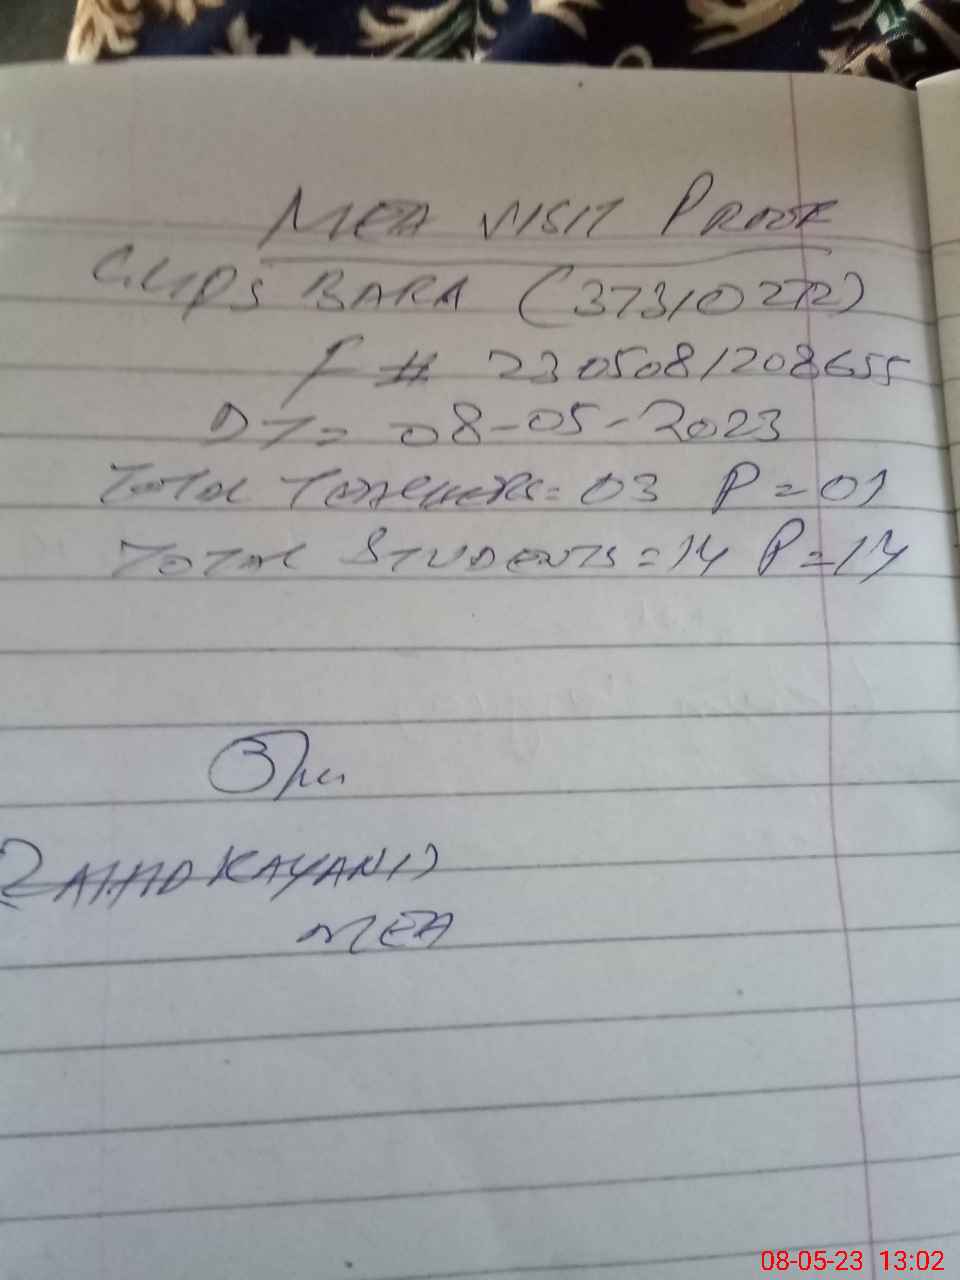 MEA VISIT PROOF
GMPS BARA (37310272)
F # 2305081208655
DT= 08-05-2023
Total Teachers= 03 P=01
TOTAL STUDENTS=14 P=14
ZAHID KAYANI)
MEA
08-05-23 13:02